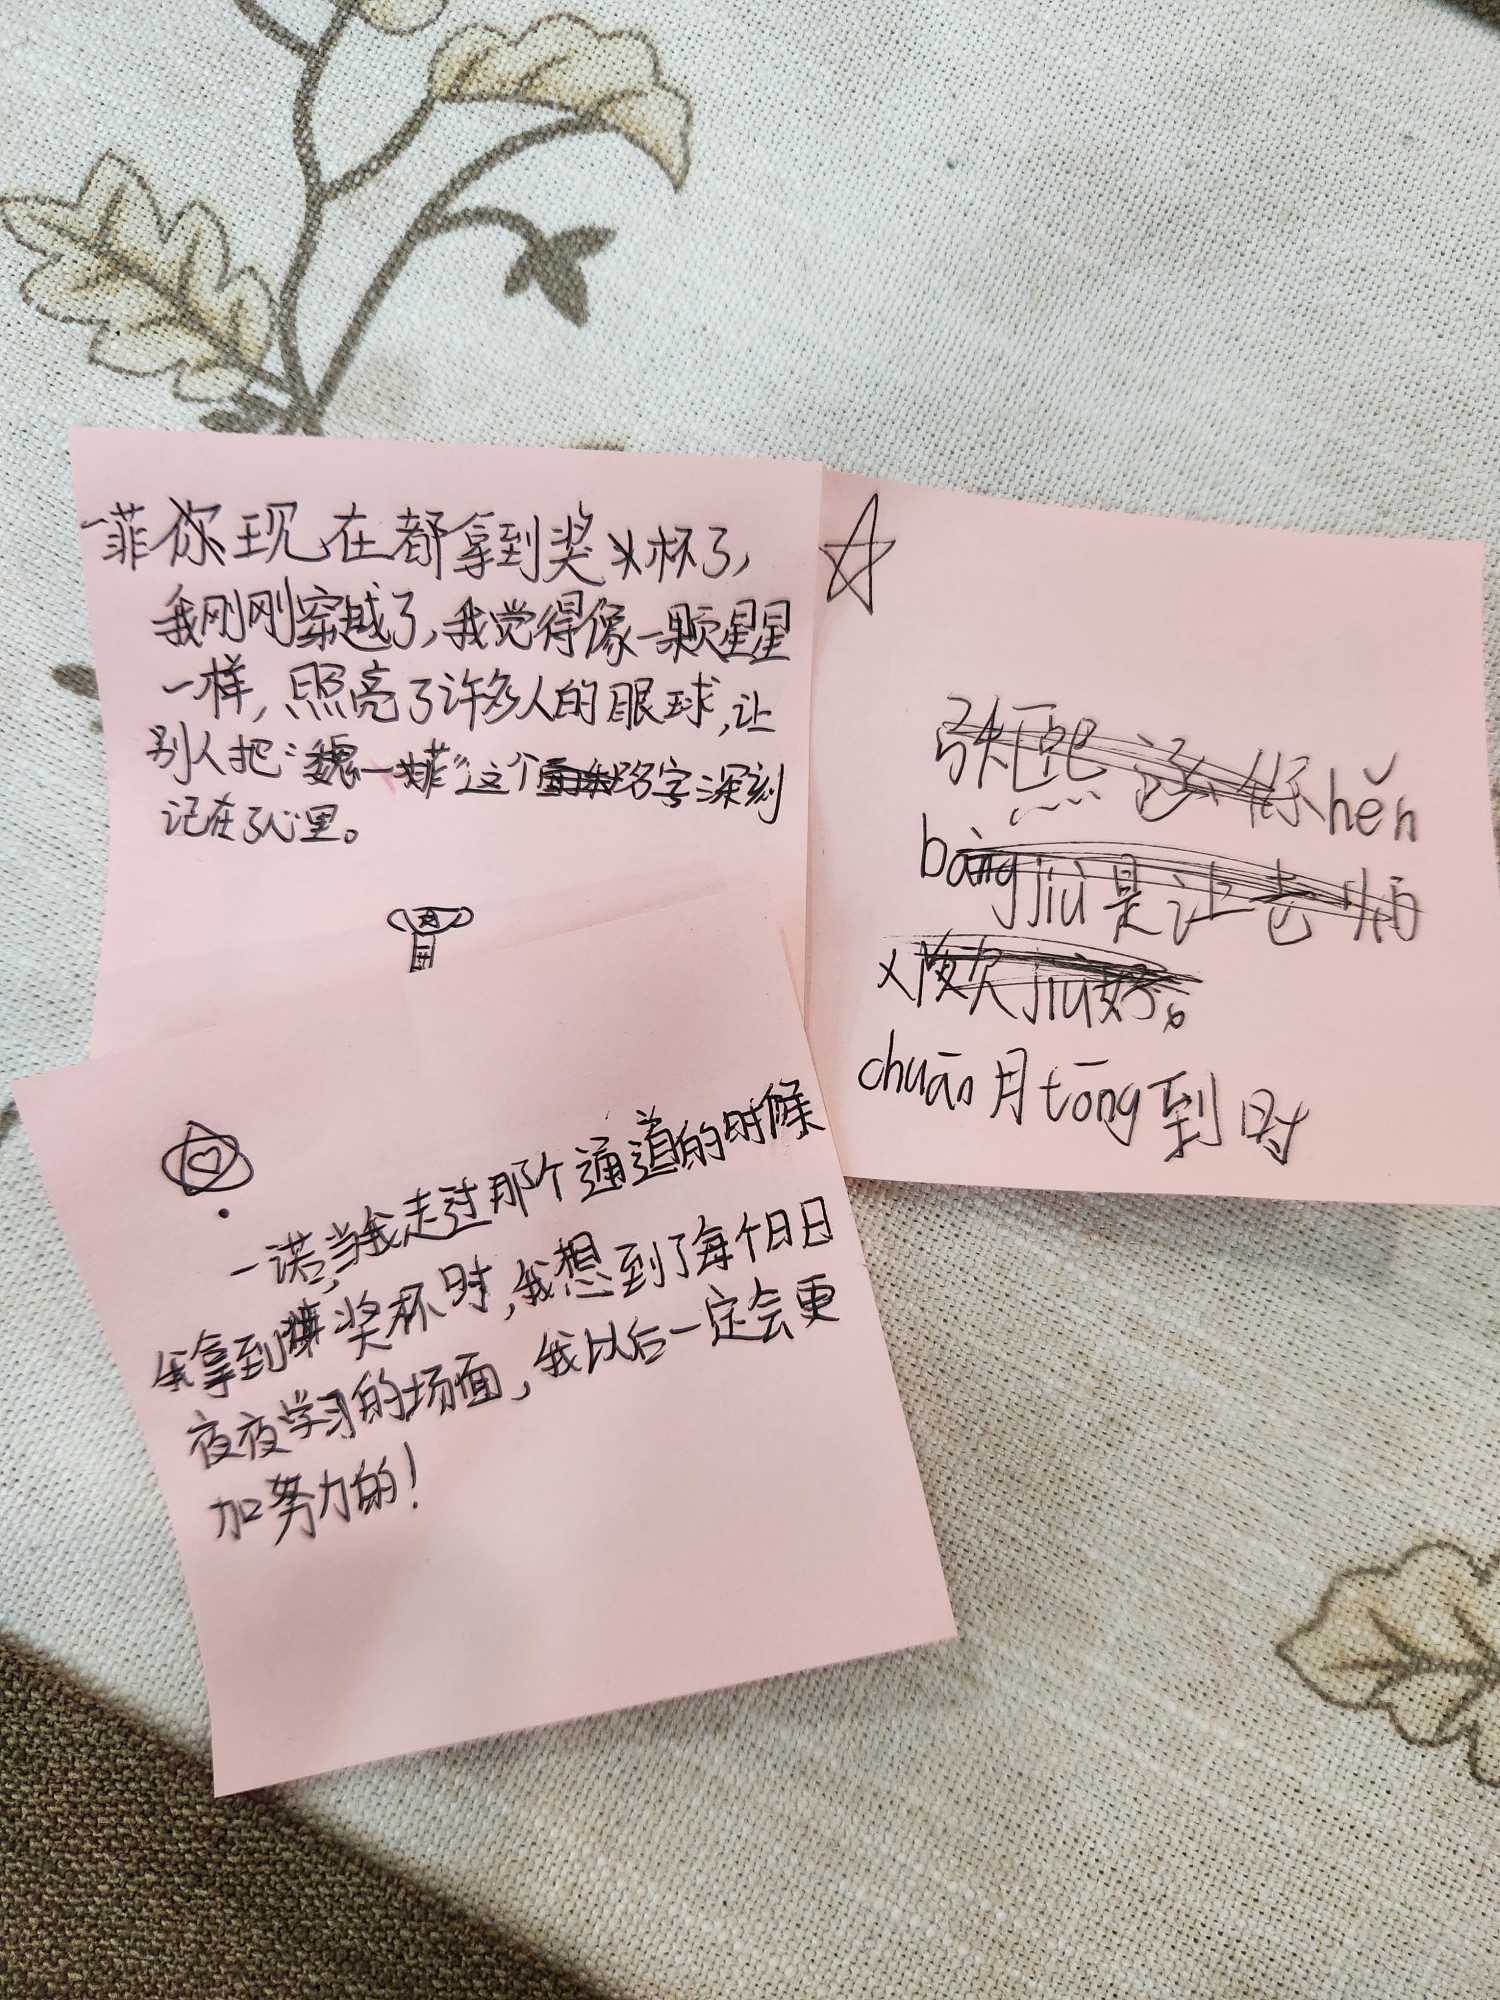 一菲你现在都拿到奖杯了,
我刚刚穿越了,我觉得像一颗星星
一样,照亮了许多人的眼球,让
别人把“魏一菲”这个名字深刻
记在了心里。
一诺,当我走过那个通道的时候
我拿到奖杯时,我想到了每个日日
夜夜学习的场面,我以后一定会更
加努力的!
张熙涵你hěn
bàng jiù是让老师
jiù好。
chuān月tōng到时